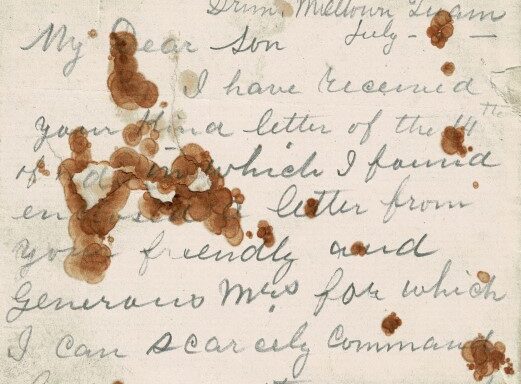 Drim, Milltown Tuam
July - —
My Dear Son
I have received
your kind letter of the 14th
in which I found
enclosed a letter from
your friendly and
Generous Mrs for which
I can scarcely Command